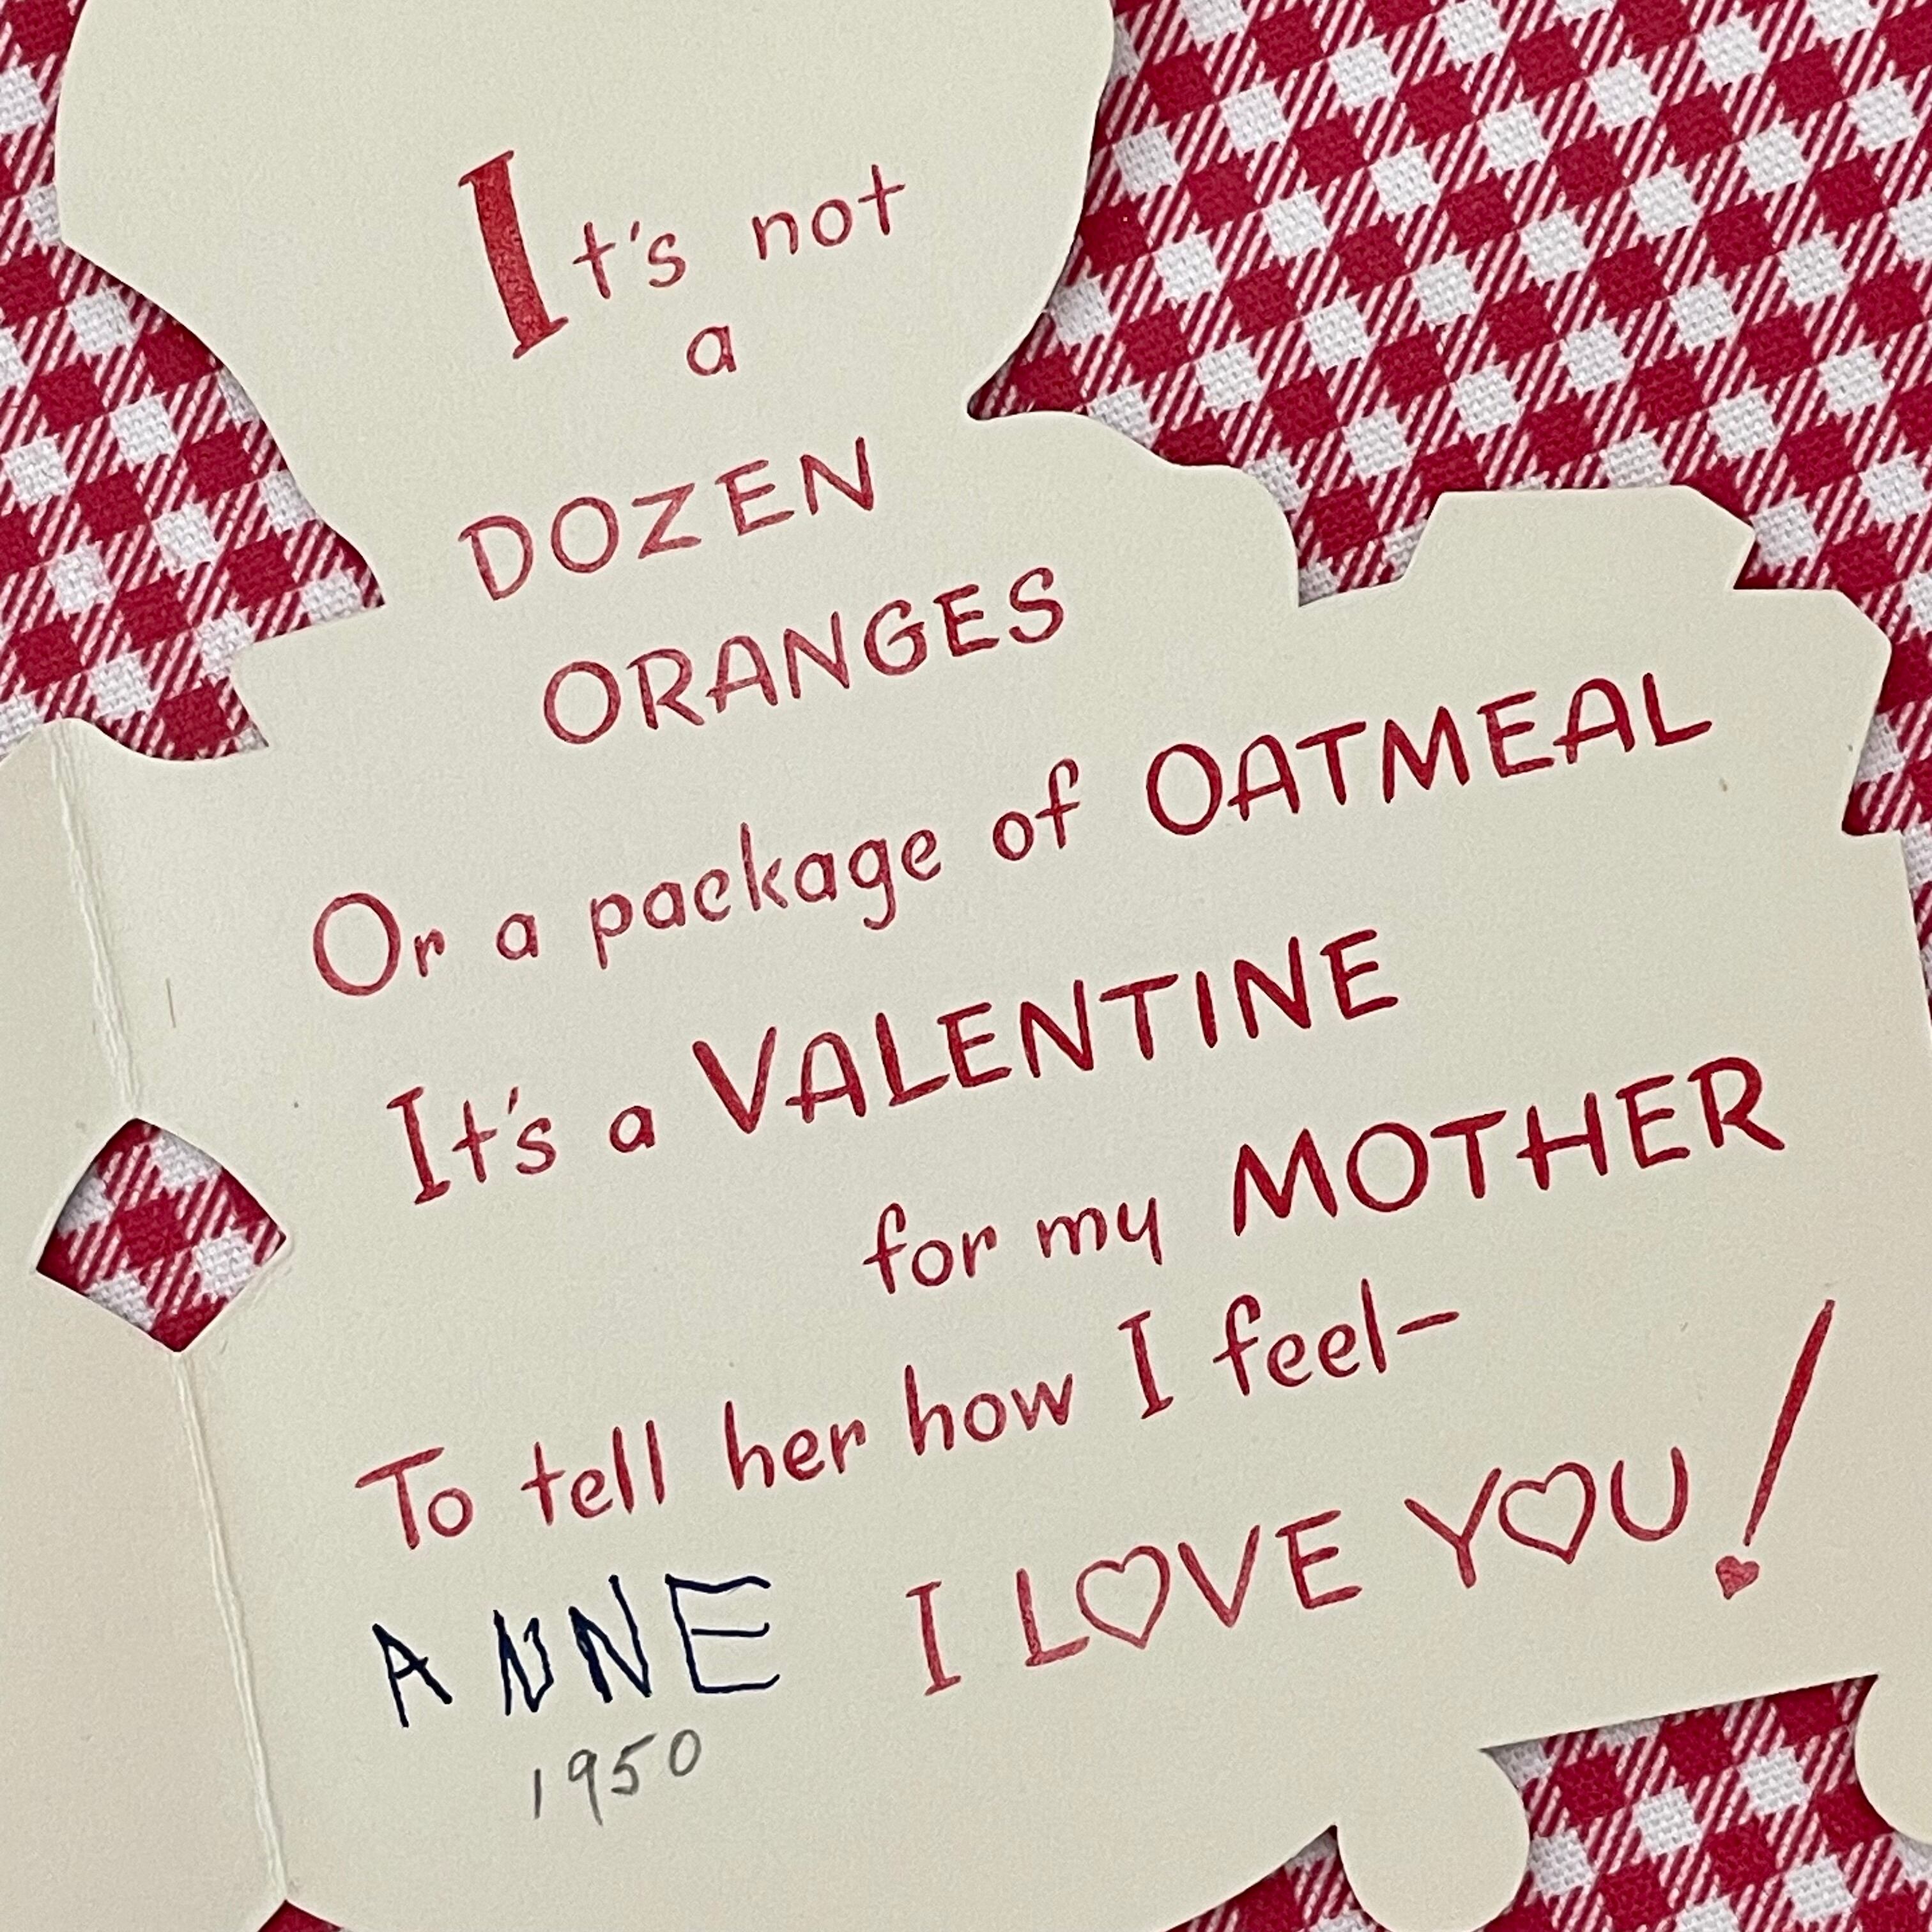 It's not
a
DOZEN
ORANGES
Or a package of OATMEAL
It's a VALENTINE
for my MOTHER
To tell her how I feel-
I LOVE YOU!
ANNE
1950